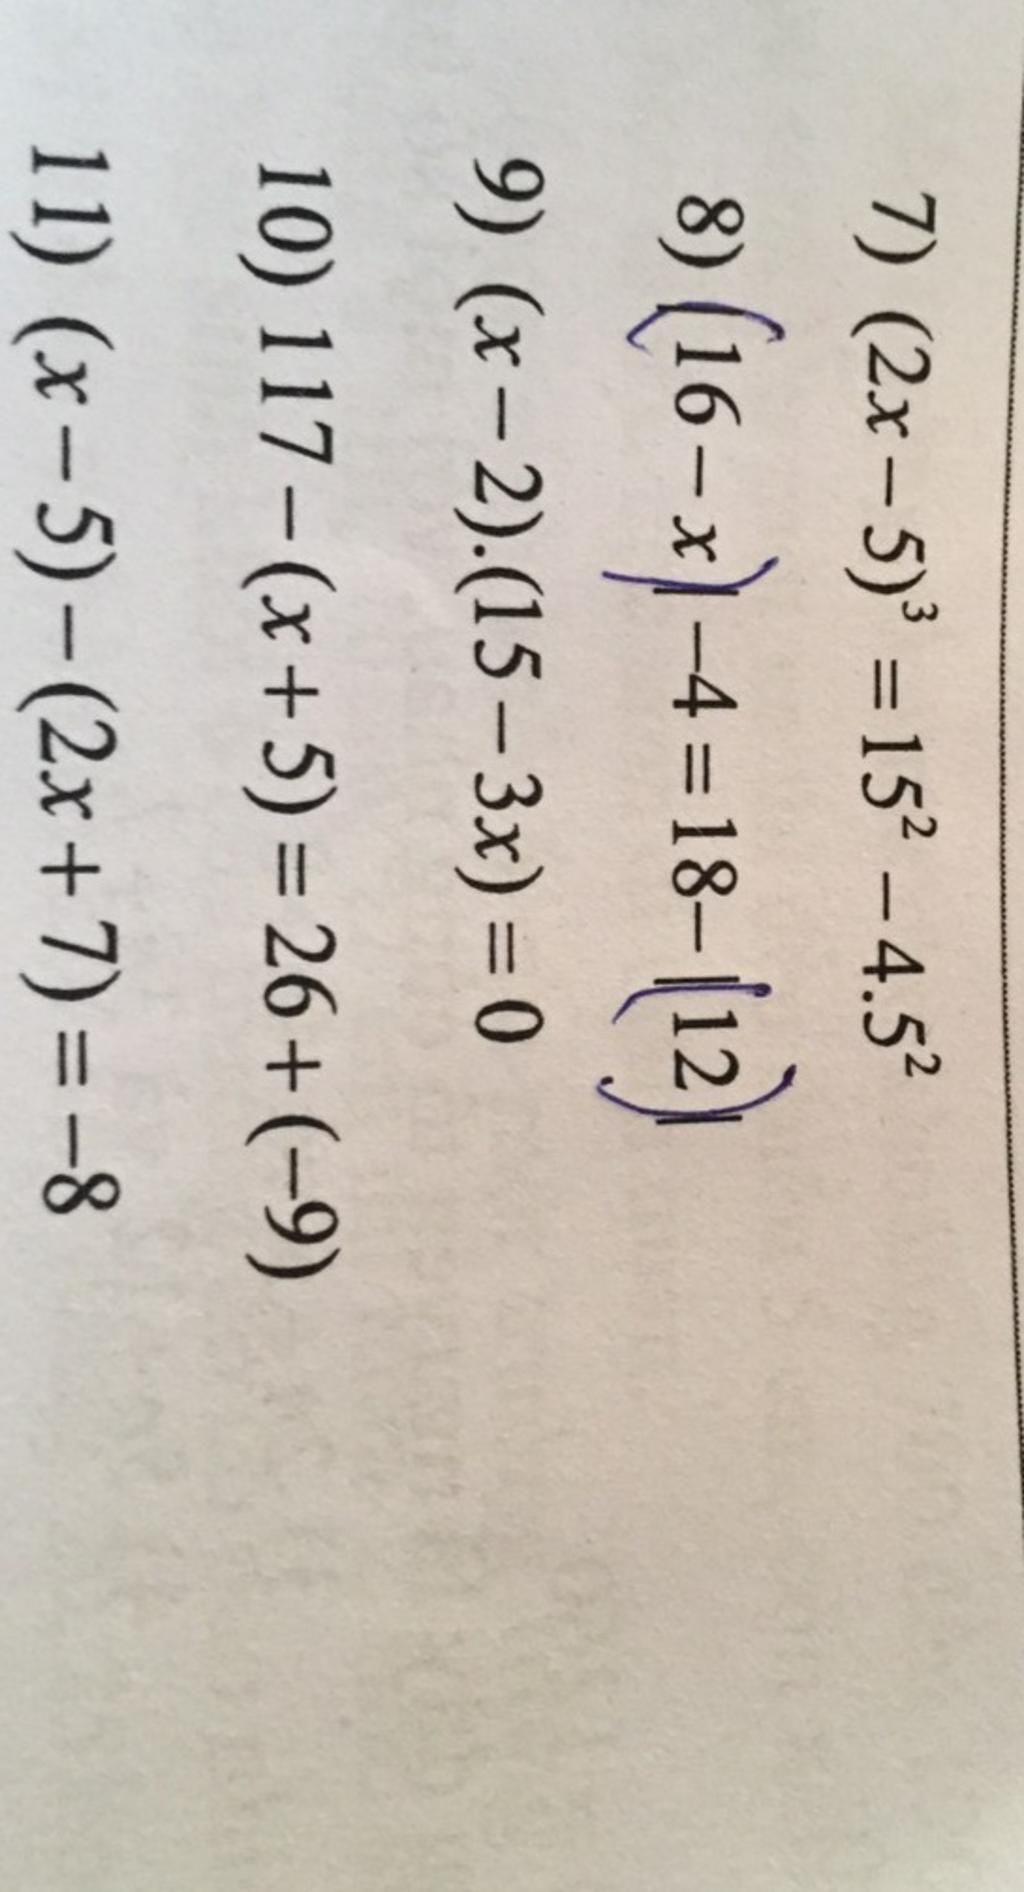 7) (2x – 5)³ = 15² – 4.5²
8) (16 – x) –4 = 18– (12)
9) (x – 2).(15 – 3x) = 0
10) 117 – (x + 5) = 26 + (–9)
11) (x – 5) – (2x + 7) = –8